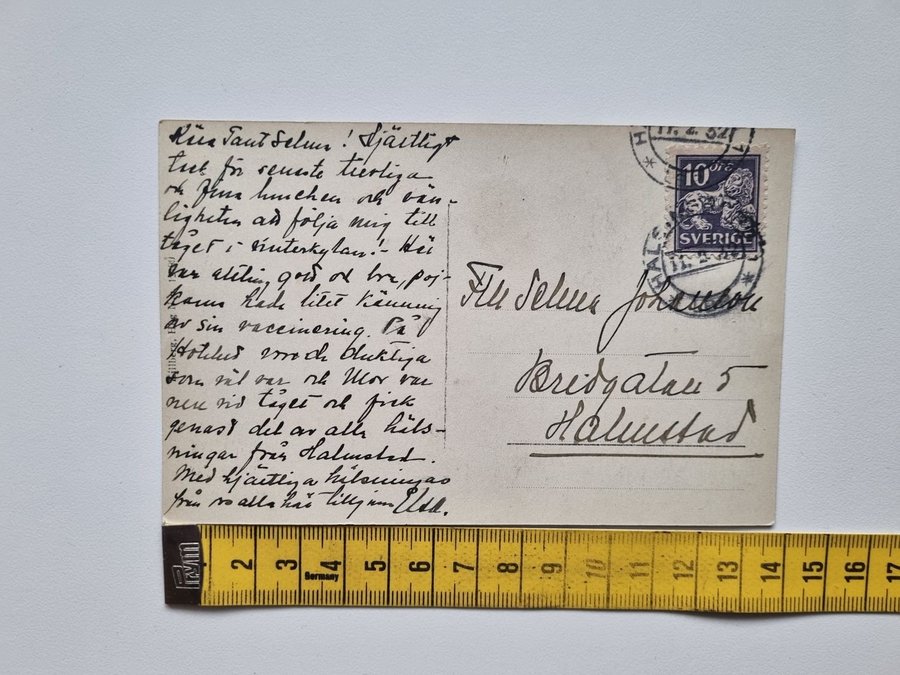 Kära Tant Selma! Hjärtligt
tack för senaste trevliga
och fina lunchen och vän-
ligheten att följa mig till
tåget i vinterkylan! - Här
var allting gott och bra, poj-
karna hade litet känning
av sin vaccinering. På
voro de duktiga
som väl var och Mor var
nere vid tåget och fick
genast del av alla häls-
ningar från Halmstad.
Med hjärtliga hälsningar
från oss alla här tillgivna Elsa.
11.2.32
10 ÖRE
SVERIGE
HALMSTAD
Frk Selma Johansson
Bredgatan 5
Halmstad
Prym
2 3 4 5 6 7 8 9 10 11 12 13 14 15 16 17
Germany